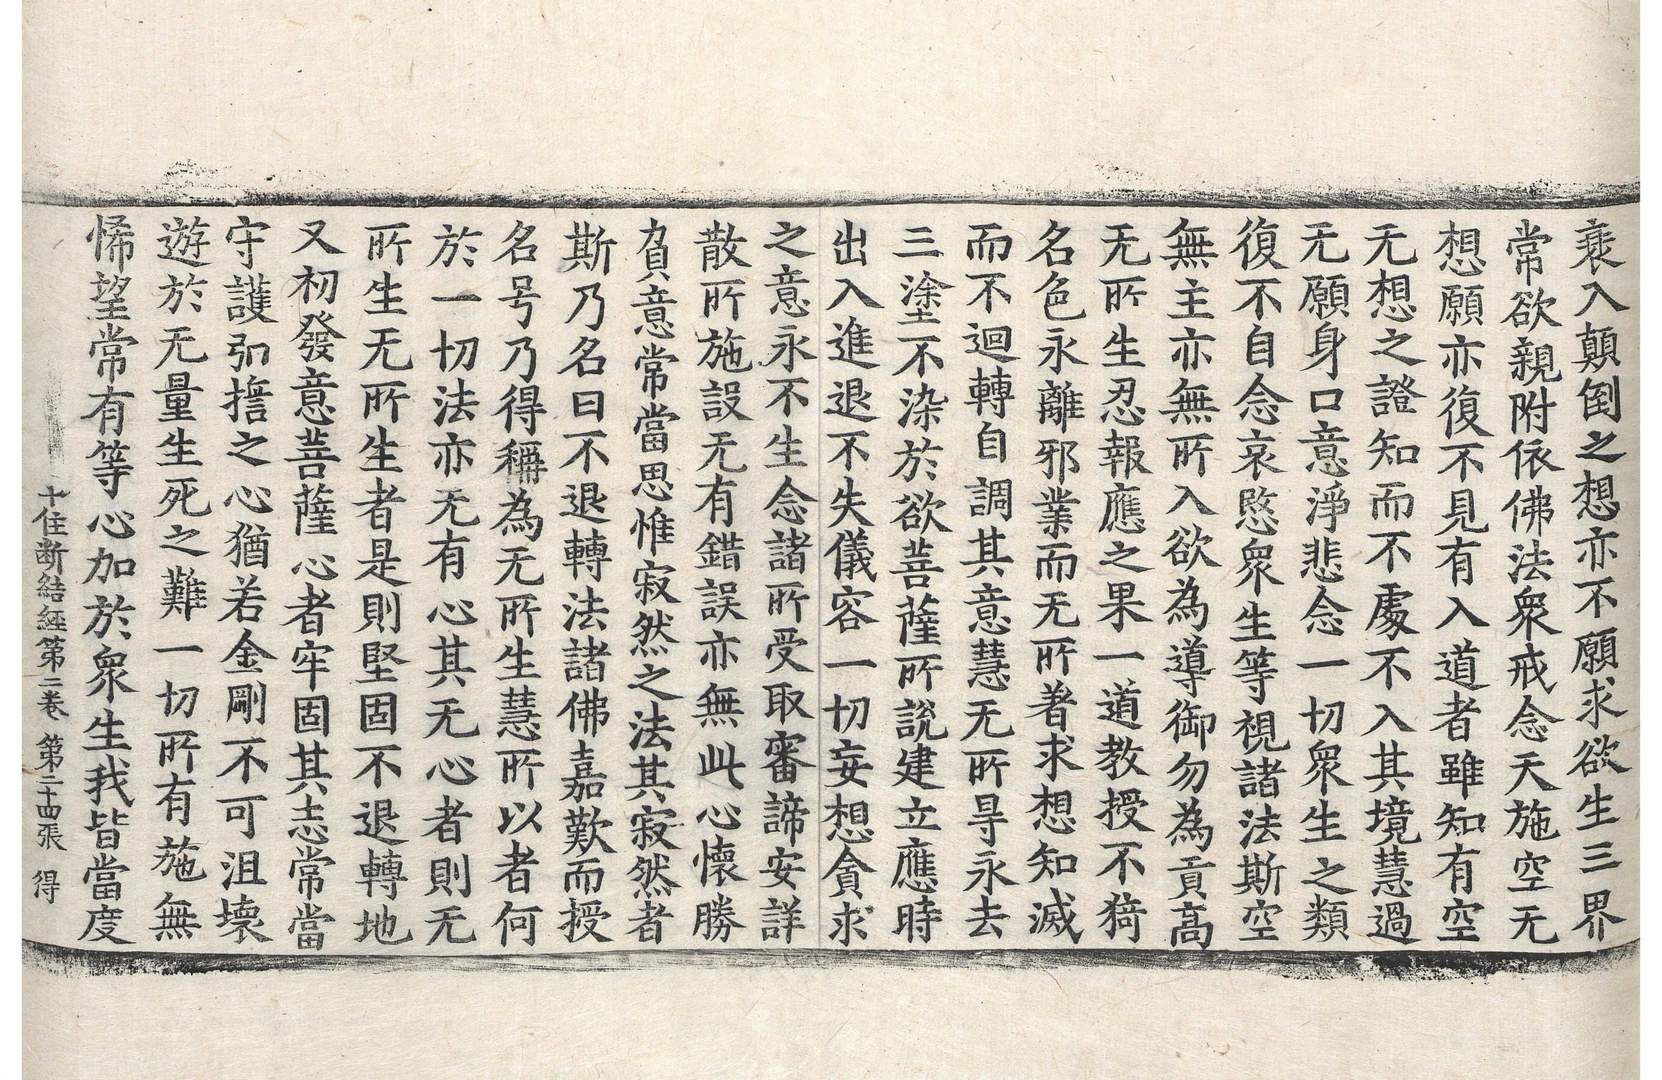 裏入顛倒之想亦不願求欲生三界
常欲親附依佛法衆戒念天施空无
想願亦復不見有入道者雖知有空
无想之證知而不處不入其境慧過
无願身口意淨悲念一切衆生之類
復不自念哀愍衆生等視諸法斯空
無主亦無所入欲為導御勿為貢高
无所生忍報應之果一道教授不猗
名色永離邪業而无所著求想知滅
而不迴轉自調其意慧无所㝵永去
三塗不染於欲菩薩所說建立應時
出入進退不失儀容一切妄想貪求
之意永不生念諸所受取審諦安詳
散所施設无有錯誤亦無此心懷勝
負意常當思惟寂然之法其寂然者
斯乃名曰不退轉法諸佛嘉歎而授
名号乃得稱為无所生慧所以者何
於一切法亦无有心其无心者則无
所生无所生者是則堅固不退轉地
又初發意菩薩心者牢固其志常當
守護弘擔之心猶若金剛不可沮壞
遊於无量生死之難一切所有施無
悕望常有等心加於衆生我皆當度
十住断結經第二卷 第二十四張 得